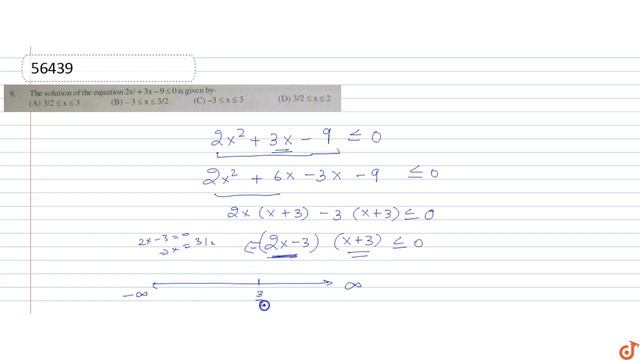 56439
9. The solution of the equation 2x² + 3x – 9 ≤ 0 is given by-
(A) 3/2 ≤ x ≤ 3 (B) – 3 ≤ x ≤ 3/2 (C) –3 ≤ x ≤ 3 (D) 3/2 ≤ x ≤ 2
2x² + 3x - 9 ≤ 0
2x² + 6x - 3x - 9 ≤ 0
2x (x+3) - 3 (x+3) ≤ 0
2x-3=0
x = 3/2
(2x-3) (x+3) ≤ 0
-∞ 3 ∞